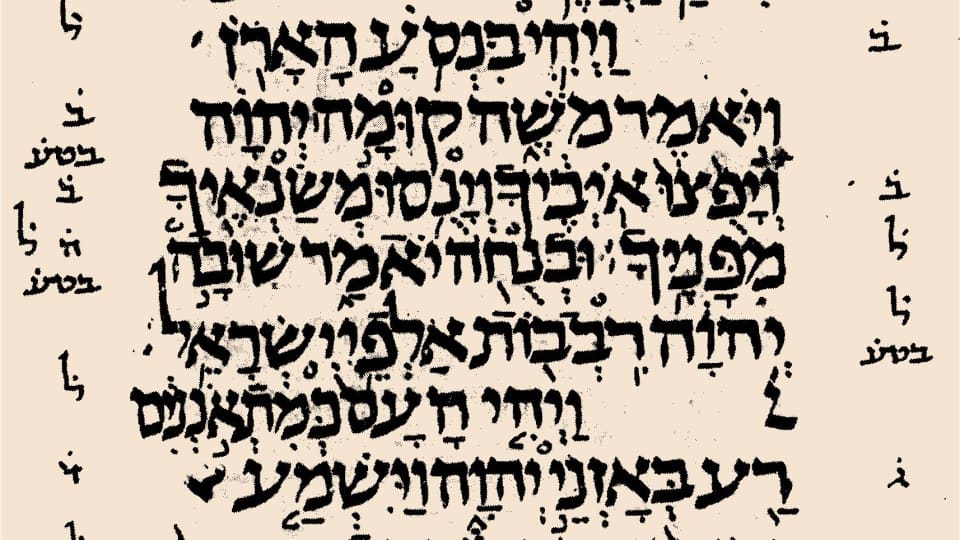 וַיְהִי בִּנְסֹעַ הָאָרֹן
וַיֹּאמֶר מֹשֶׁה קוּמָה יְהוָה
וְיָפֻצוּ אֹיְבֶיךָ וְיָנֻסוּ מְשַׂנְאֶיךָ
מִפָּנֶיךָ׃ וּבְנֻחֹה יֹאמַר שׁוּבָה
יְהוָה רִבְבוֹת אַלְפֵי יִשְׂרָאֵל׃
׆ וַיְהִי הָעָם כְּמִתְאֹנְנִים
רַע בְּאָזְנֵי יְהוָה וַיִּשְׁמַע
בׄ
בׄ
לׄ
לׄ
בטע
גׄ
לׄ
בׄ
בטע
בׄ
הׄ לׄ
בטע
לׄ